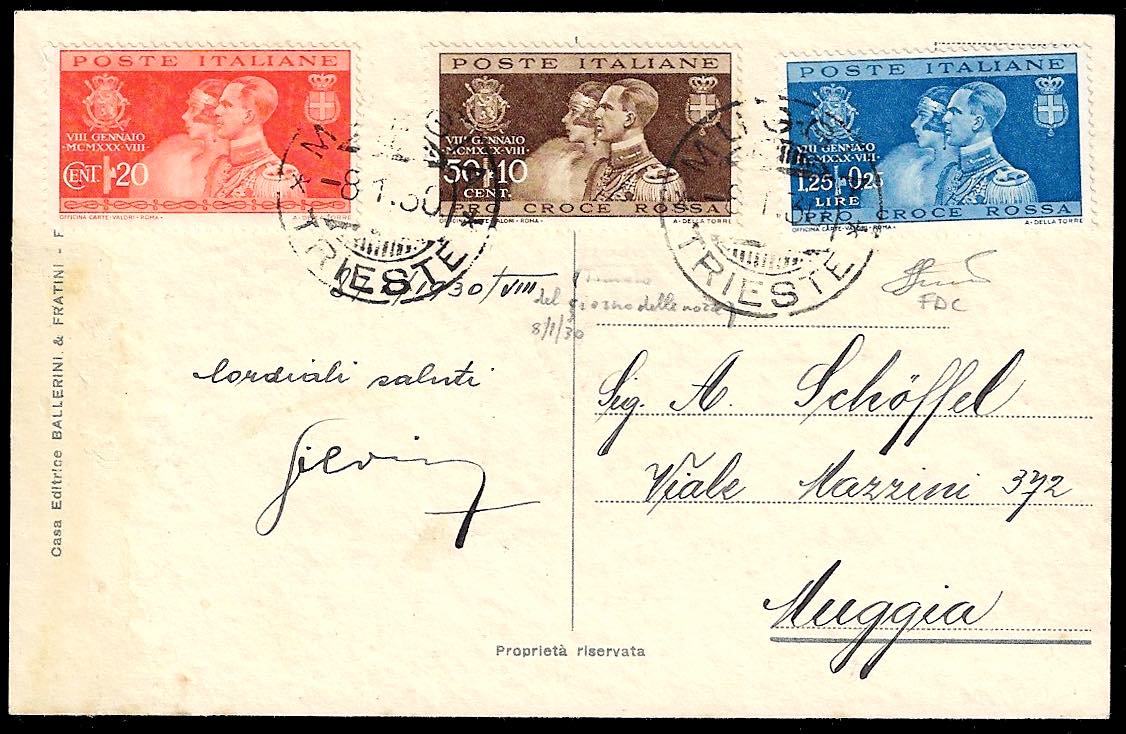 POSTE ITALIANE
VIII GENNAIO
·MCMXXX·VIII·
CENT. 20
OFFICINA CARTE-VALORI - ROMA
POSTE ITALIANE
VIII GENNAIO
·MCMXXX·VIII·
50+10
CENT.
PRO CROCE ROSSA
OFFICINA CARTE-VALORI - ROMA
A·DELLA TORRE
POSTE ITALIANE
VIII GENNAIO
MCMXXX·VIII
1,25+0,25
LIRE
PRO CROCE ROSSA
OFFICINA CARTE-VALORI - ROMA
A·DELLA TORRE
MUGGIA
-8.1.30
TRIESTE
MUGGIA
TRIESTE
1930/VIII
del giorno delle nozze
8/1/30
FDC
Cordiali saluti
Sig. A. Schöffel
Viale Mazzini 372
Muggia
Proprietà riservata
Casa Editrice BALLERINI & FRATINI - F